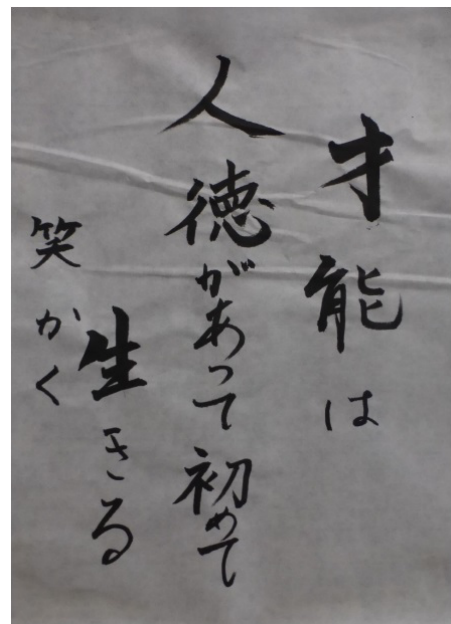 才能は
人徳があって初めて
生きる
笑かく